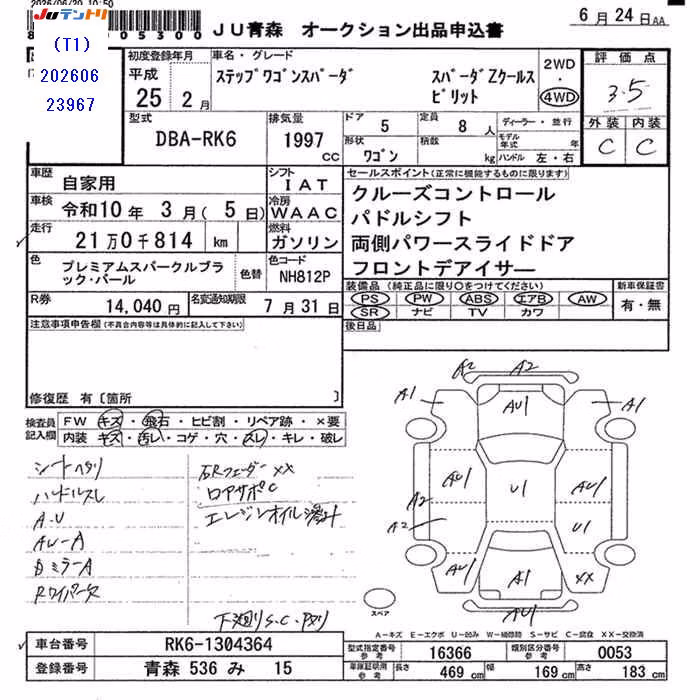 2026/06/20 10:50
JUテントリ
(T1)
202606
23967
05300
JU青森 オークション出品申込書
6月24日AA
初度登録年月
平成
25 2月
車名・グレード
ステップワゴンスパーダ
スパーダZクールスピリット
2WD
・
4WD
評価点
3.5
外装 内装
C C
型式
DBA-RK6
排気量
1997
CC
ドア 5
定員 8 人
形状
ワゴン
積数
kg
ディーラー・並行
モデル年式 年
ハンドル 左・右
車歴
自家用
シフト
IAT
車検
令和10年 3月( 5日)
冷房
WAAC
走行
21万0千814 km
燃料
ガソリン
色
プレミアムスパークルブラック・パール
色替
色コード
NH812P
R券
14,040円
名変通知期限
7月31日
セールスポイント(正常に機能するものに限ります)
クルーズコントロール
パドルシフト
両側パワースライドドア
フロントデアイサー
装備品(純正品に限り○をつけてください)
PS・PW・ABS・エアB・AW
SR・ナビ・TV・カワ
新車保証書
有・無
後日品
注意事項申告欄(不具合内容等は具体的に記入して下さい)
修復歴 有〔箇所 〕
検査員記入欄
FW キズ・飛石・ヒビ割・リペア跡・×要
内装 キズ・汚レ・コゲ・穴・スレ・キレ・破レ
シートヘタリ
ハンドルスレ
A・U
AU-A
BミラーA
Rワイパー欠
右Rフェンダー XX
ロアサポC
エンジンオイル滲ミ
下廻りS.C.
A2 A2
A1 AU1 A1
AU1 U1 AU1
A2
A2 U1
AU1 A1 XX
AU1
スペア
A-キズ E-エクボ U-凹み W-補修跡 S-サビ C-腐食 XX-交換済
車台番号
RK6-1304364
登録番号
青森 536 み 15
型式指定番号 参考
16366
類別区分番号 参考
0053
車庫証明用 参考
長さ 469 cm
幅 169 cm
高さ 183 cm